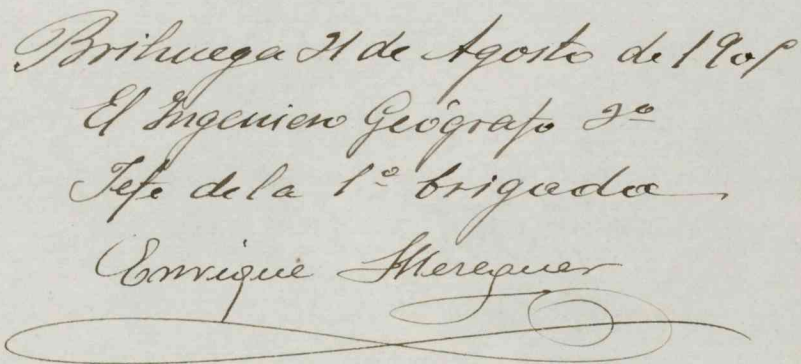 Brihuega 21 de Agosto de
El Ingeniero Geógrafo 2º
Jefe de la 1ª brigada
Enrique Meseguer